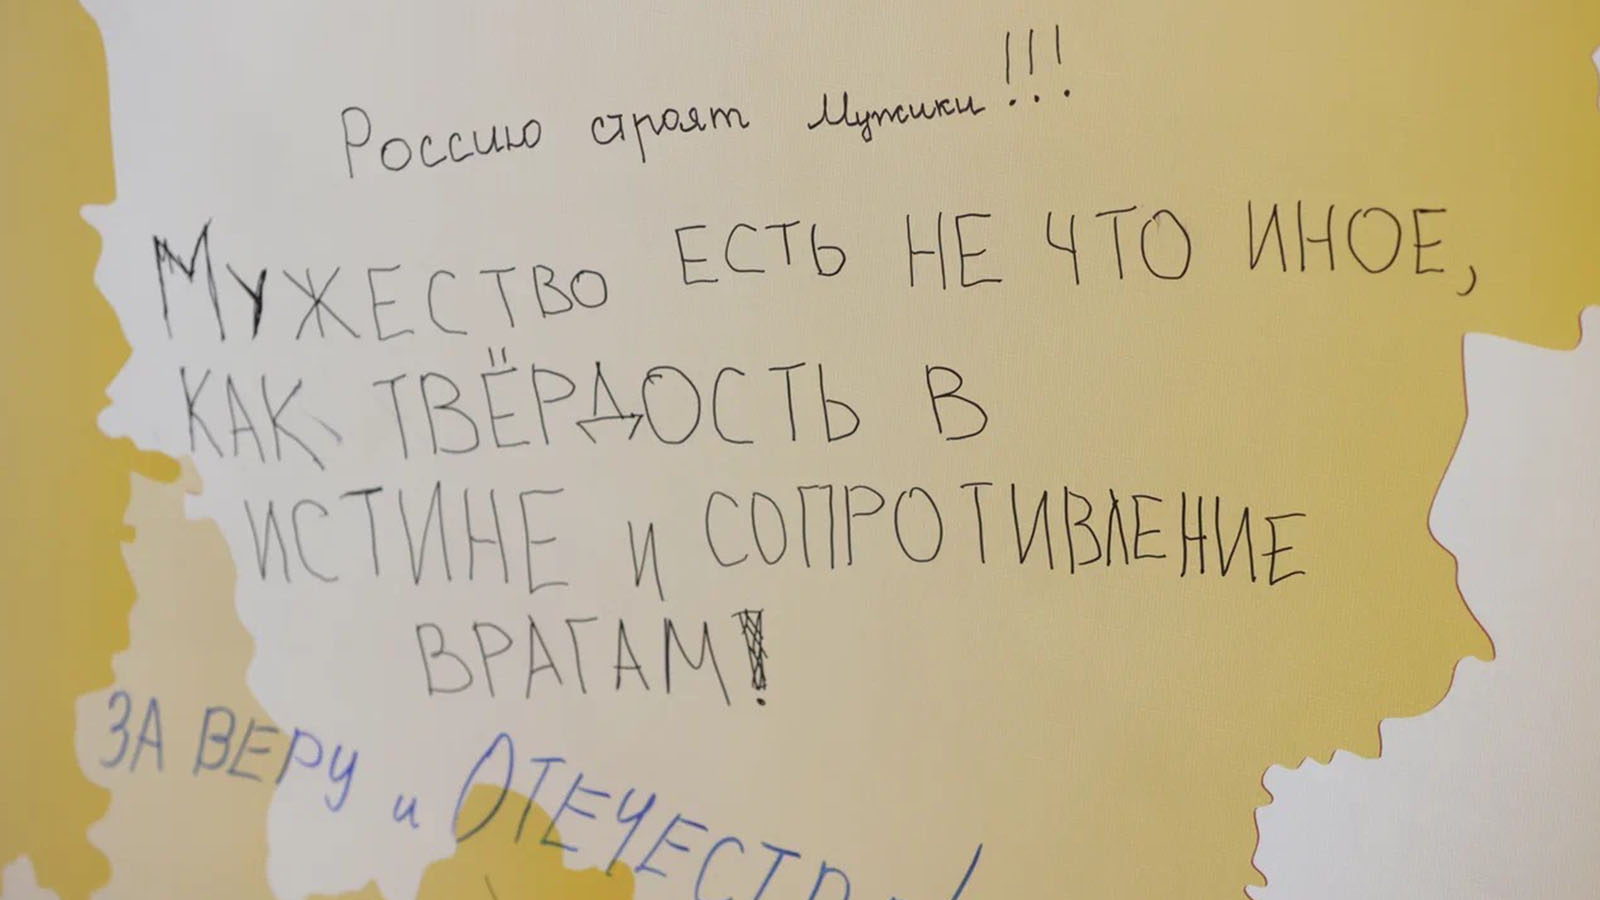 Россию строят Мужики!!!
Мужество есть не что иное,
как твёрдость в
истине и сопротивление
врагам!
За веру и Отечество!